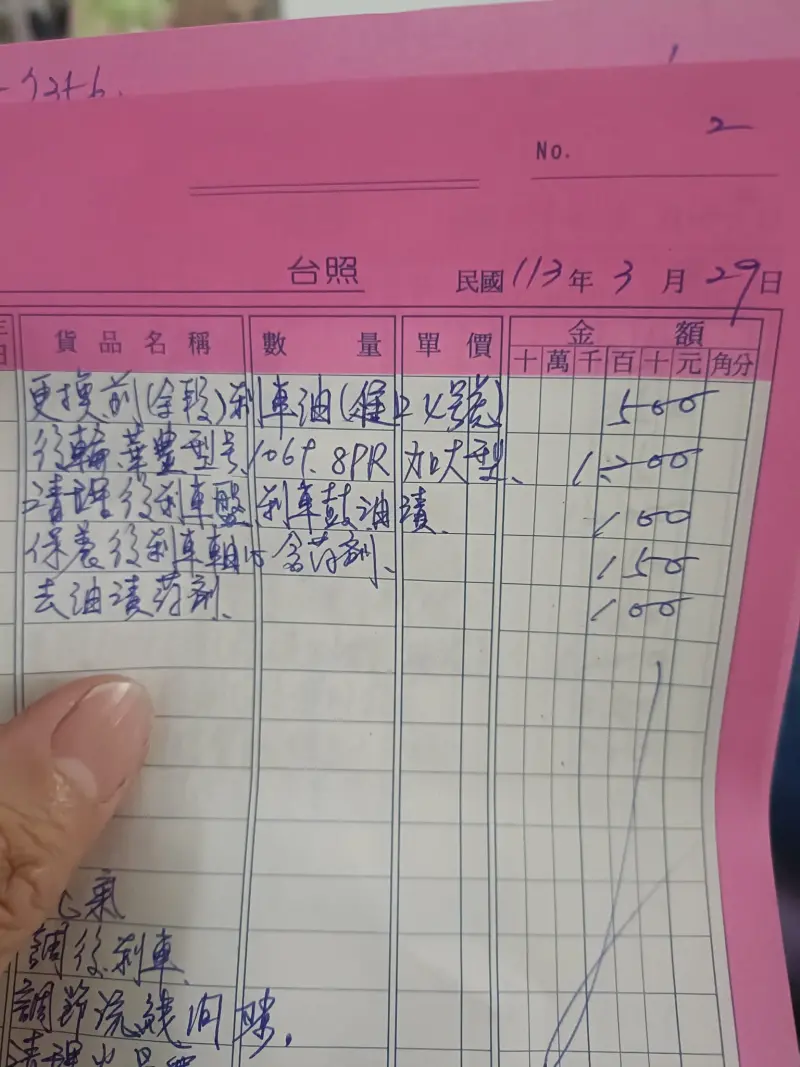 No. 2
台照 民國113年3月29日
貨品名稱 數量 單價 金額
十萬千百十元角分
更換前(全段)剎車油( 4號) 500
後輪華豐型號106t. 8PR 加大型、 1200
清理後剎車盤 剎車鼓油漬、 100
保養後剎車 含药剂、 150
去油漬药剂、 100
氣
調後剎車、
調節 間隙.
清理